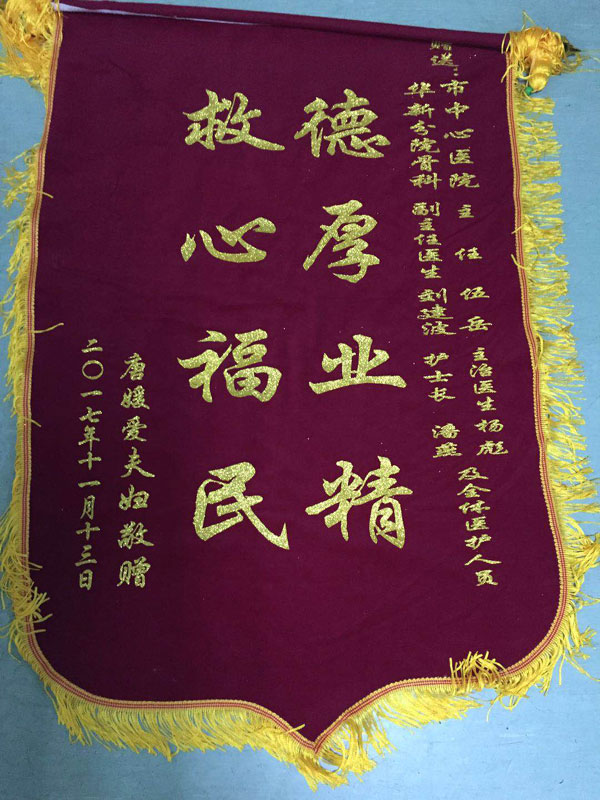 赠送：
市中心医院 主任 伍岳 主治医生杨彪
华新分院骨科 副主任医生 刘建波 护士长 潘燕
及全体医护人员
德厚业精
救心福民
唐媛爱夫妇敬赠
二〇一七年十一月十三日